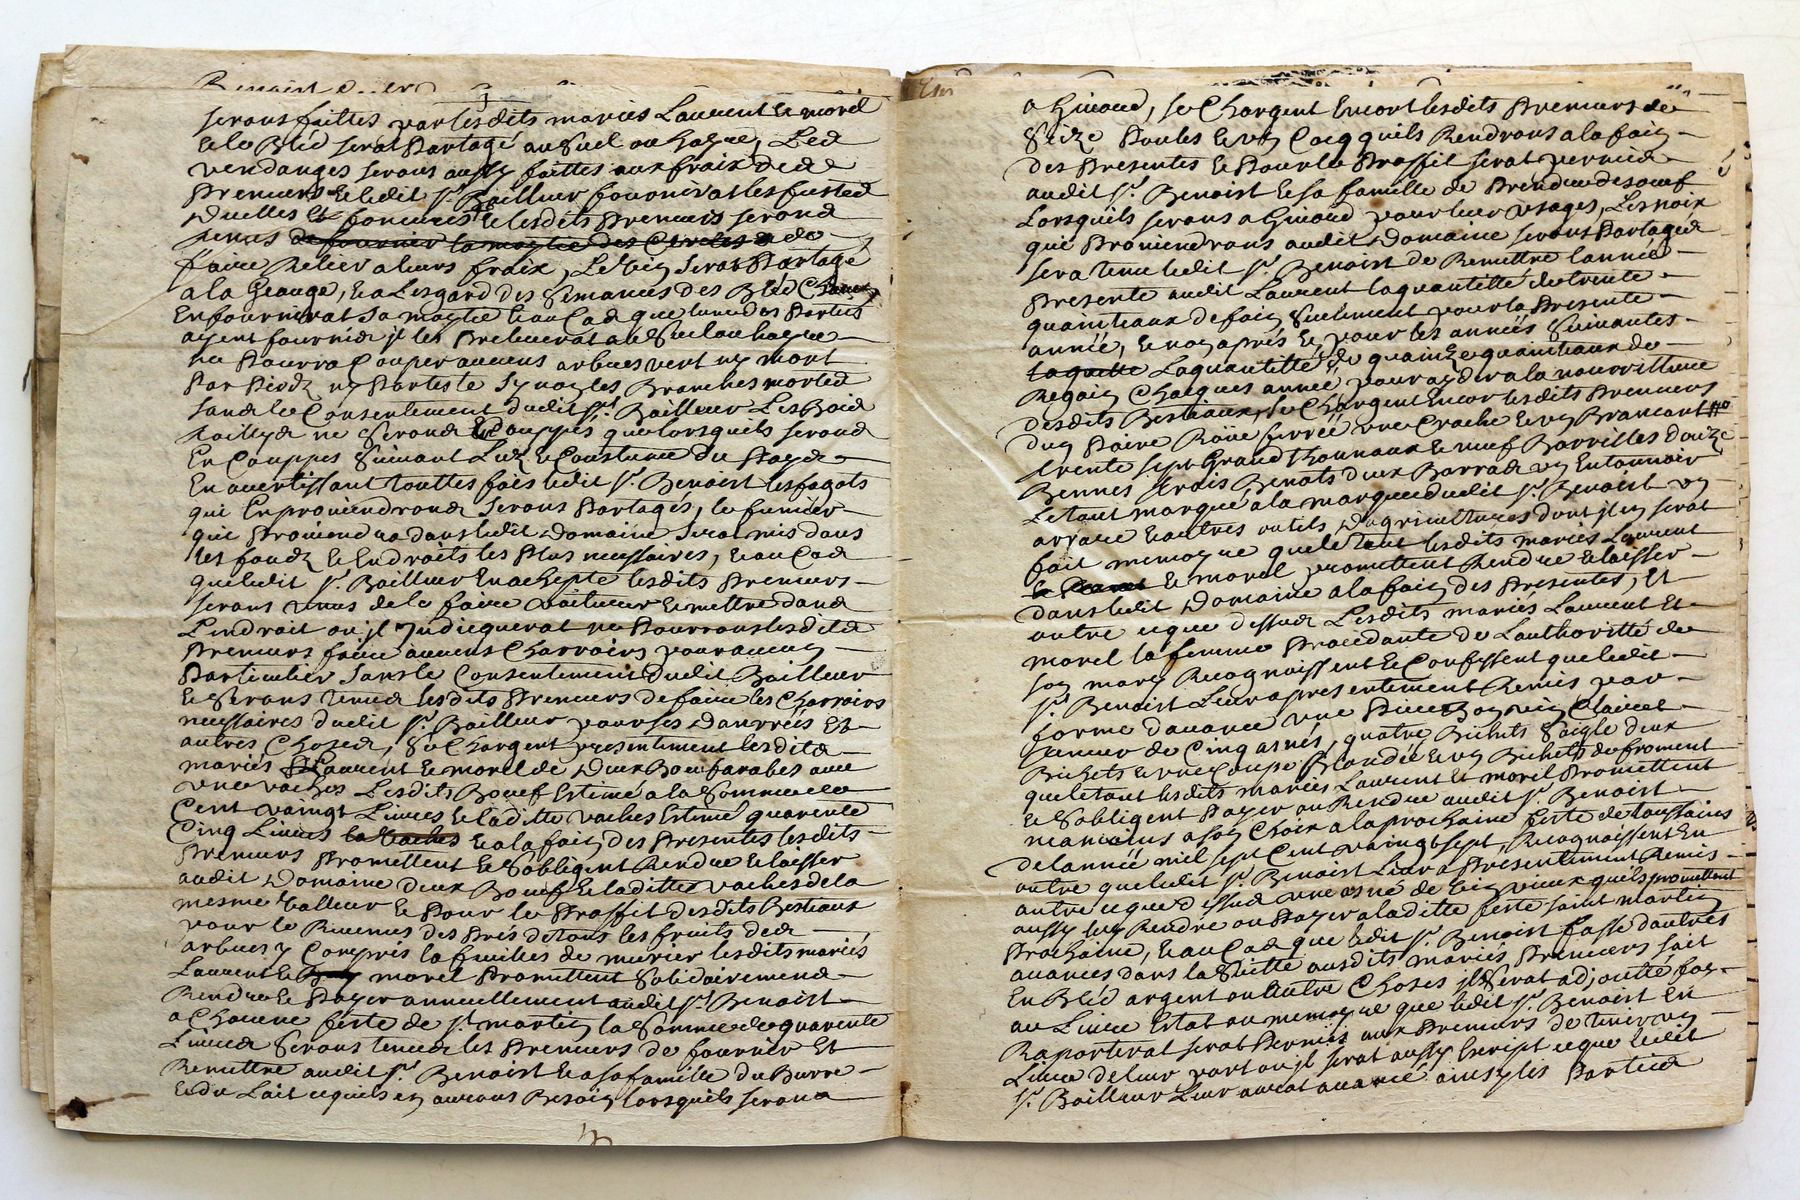 serons faittes par lesdits mariés Laurent & morel
& le Bléd serat Partagé au Sueil ou hayre, Les
vendanges serons aussy faittes aux fraix desd
Preneurs & ledit sr. Bailleur fournirat les fustes
& lesdits Preneurs serond
tenus de fournier la moytié des Cercles & de
faire Relier a leurs fraix, Le vin serat Partagé
a la Geauge, & a Lesgard des Semances des Bléd Chacun
En fournirat sa moytié & au Cas que lune des Parties
ayent fournies jl les Preleverat a Sueil ou hayre
ne Pourra Couper aucuns arbres vert ny mort
Par Piedz ny Par teste Synon les Branches mortes
sans le Consentement dudit sr. Bailleur Les Bois
taillys ne Serond Couppés que lorsquils serond
En Couppes Suivant Luz & Coustume du Pays
En avertissant touttes fois ledit sr. Benoist les fagots
qui En proviendrond Serons Partagés, le fumier
qui Proviendra dans ledit Domaine Sera mis dans
les fondz & Endroits les Plus necessaires, & au Cas
que ledit sr. Bailleur En achepte lesdits Preneurs
serons tenus de le faire voiturer & mettre dans
Lendroit ou jl Indicquerat ne Pourrons lesdits
Preneurs faire aucuns Charrois pour aucun
Particulier Sans le Consentement dudit Bailleur
& Serons tenus lesdits Preneurs de faire les Charrois
necessaires dudit sr. Bailleur pour ses Danrrées Et
autres Choses, Se Chargent presentement lesdits
mariés Laurent & morel de Deux Bouf arabes avec
une vaches Lesdits Bouef Estimé a la Somme de
Cent vaingt Livres & laditte vaches Estimé quarente
Cinq Livres la vaches & a la fain des Presentes lesdits
Preneurs Promettent & Sobligent Rendre & laisser
audit Domaine deux Bouef & laditte vaches de la
mesme valleur & Pour le Proffit desdits Bestiaux
pour le Revenus des Prés de tous les fruits des
arbres y Compris la fuilles de murier lesdits mariés
Laurent & morel Promettent Solidairement
Rendre & Payer annuellement audit sr. Benoist
a Chacune feste de st. martin la Somme de quarente
Livres Serons tenus les Preneurs de fournir Et
Remettre audit sr. Benoist & a sa famille du Burre
& du Lait ce quils en aurons Besoin lorsquils serons
a Givord, se Chargent Encore lesdits Preneurs de
Seize Poules & un Cocq quils Rendrons a la fain
des Presentes & Pour le Proffit serat permis
audit sr. Benoist & sa famille de Prendre des oeuf
Lorsquils serons a Givord pour leur usages, Les noix
qui Proviendrons audit Domaine serons Partagés
sera tenu ledit sr. Benoist de Remettre lannée
Presente audit Laurent la quantitté de trente
quainteaux de foin Seulement pour la Presente
année, & non aprés & pour les années Suivantes
laquelle Laquantitté de quainze quainteaux de
Regain Chacques année pour ayder a la nourritture
desdits Bestiaux, se Chargent Encor lesdits Preneurs
dun Paire Roüe ferrée une Crache & un Brancart
trente sept Grand thonnaux & neuf Barrilles douze
Bennes trois Benots deux Barrat un Entonnoir
Le tout marqué a la marque dudit sr. Benoist un
arraire & autres outils Dagricultures dont jl en serat
fait memoyre que le tout lesdits mariés Laurent
& morel promettent Rendre & laisser
dans ledit Domaine a la fain des Presentes, Et
outre ce que dessus Lesdits mariés Laurent Et
morel sa femme Procedante de Lauthoritté de
son mary Recognoissent & Confessent que ledit
sr. Benoist Leur a presentement Remis par
forme davance une Piece Bon vin Clairet
tenier de Cinq asnés, quatre Bichets Saigle deux
Bichets & une Coupe Blondée & un Bichets de froment
que le tout lesdits mariés Laurent Et morel Promettent
& Sobligent Payer ou Rendre audit sr. Benoist
a son Choix a la prochaine feste de toussains
de lannée mil sept Cent vaingt sept, Recognoissent En
outre que ledit sr. Benoist Leur a Presentement Remis
outre ce que dessus une asné de vin vieux quils promettent
aussy luy Rendre ou Payer a laditte feste saint martin
Prochaine, & au Cas que ledit sr. Benoist fasse dautres
avances dans la Suitte ausdits mariés Preneurs soit
En Bléd argent ou autre Choses jl Serat adjoutté foy
au Livre Estat ou memoyre que ledit sr. Benoist En
Raporterat serat Permis aux Preneurs de tenir un
Livre de leur part ou jl serat aussy Escript ce que ledit
sr. Bailleur Leur aurat avancé ainsy les Parties